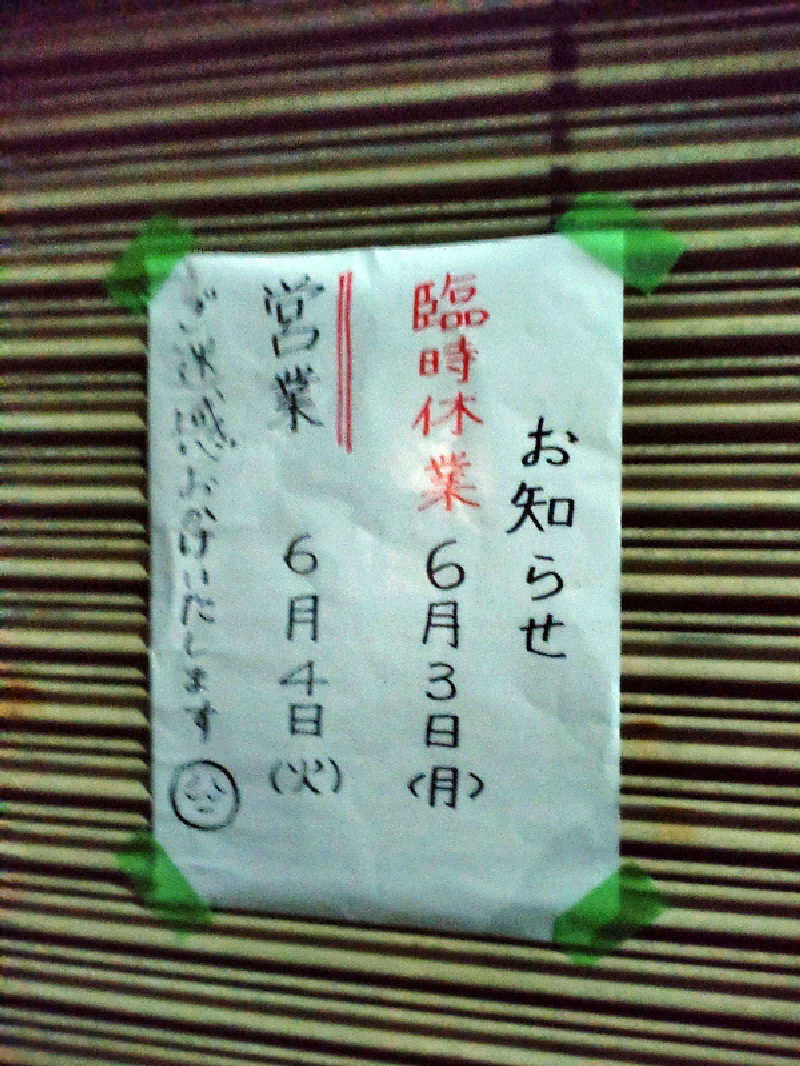 お知らせ
臨時休業 6月3日(月)
営業 6月4日(火)
ご迷惑おかけいたします